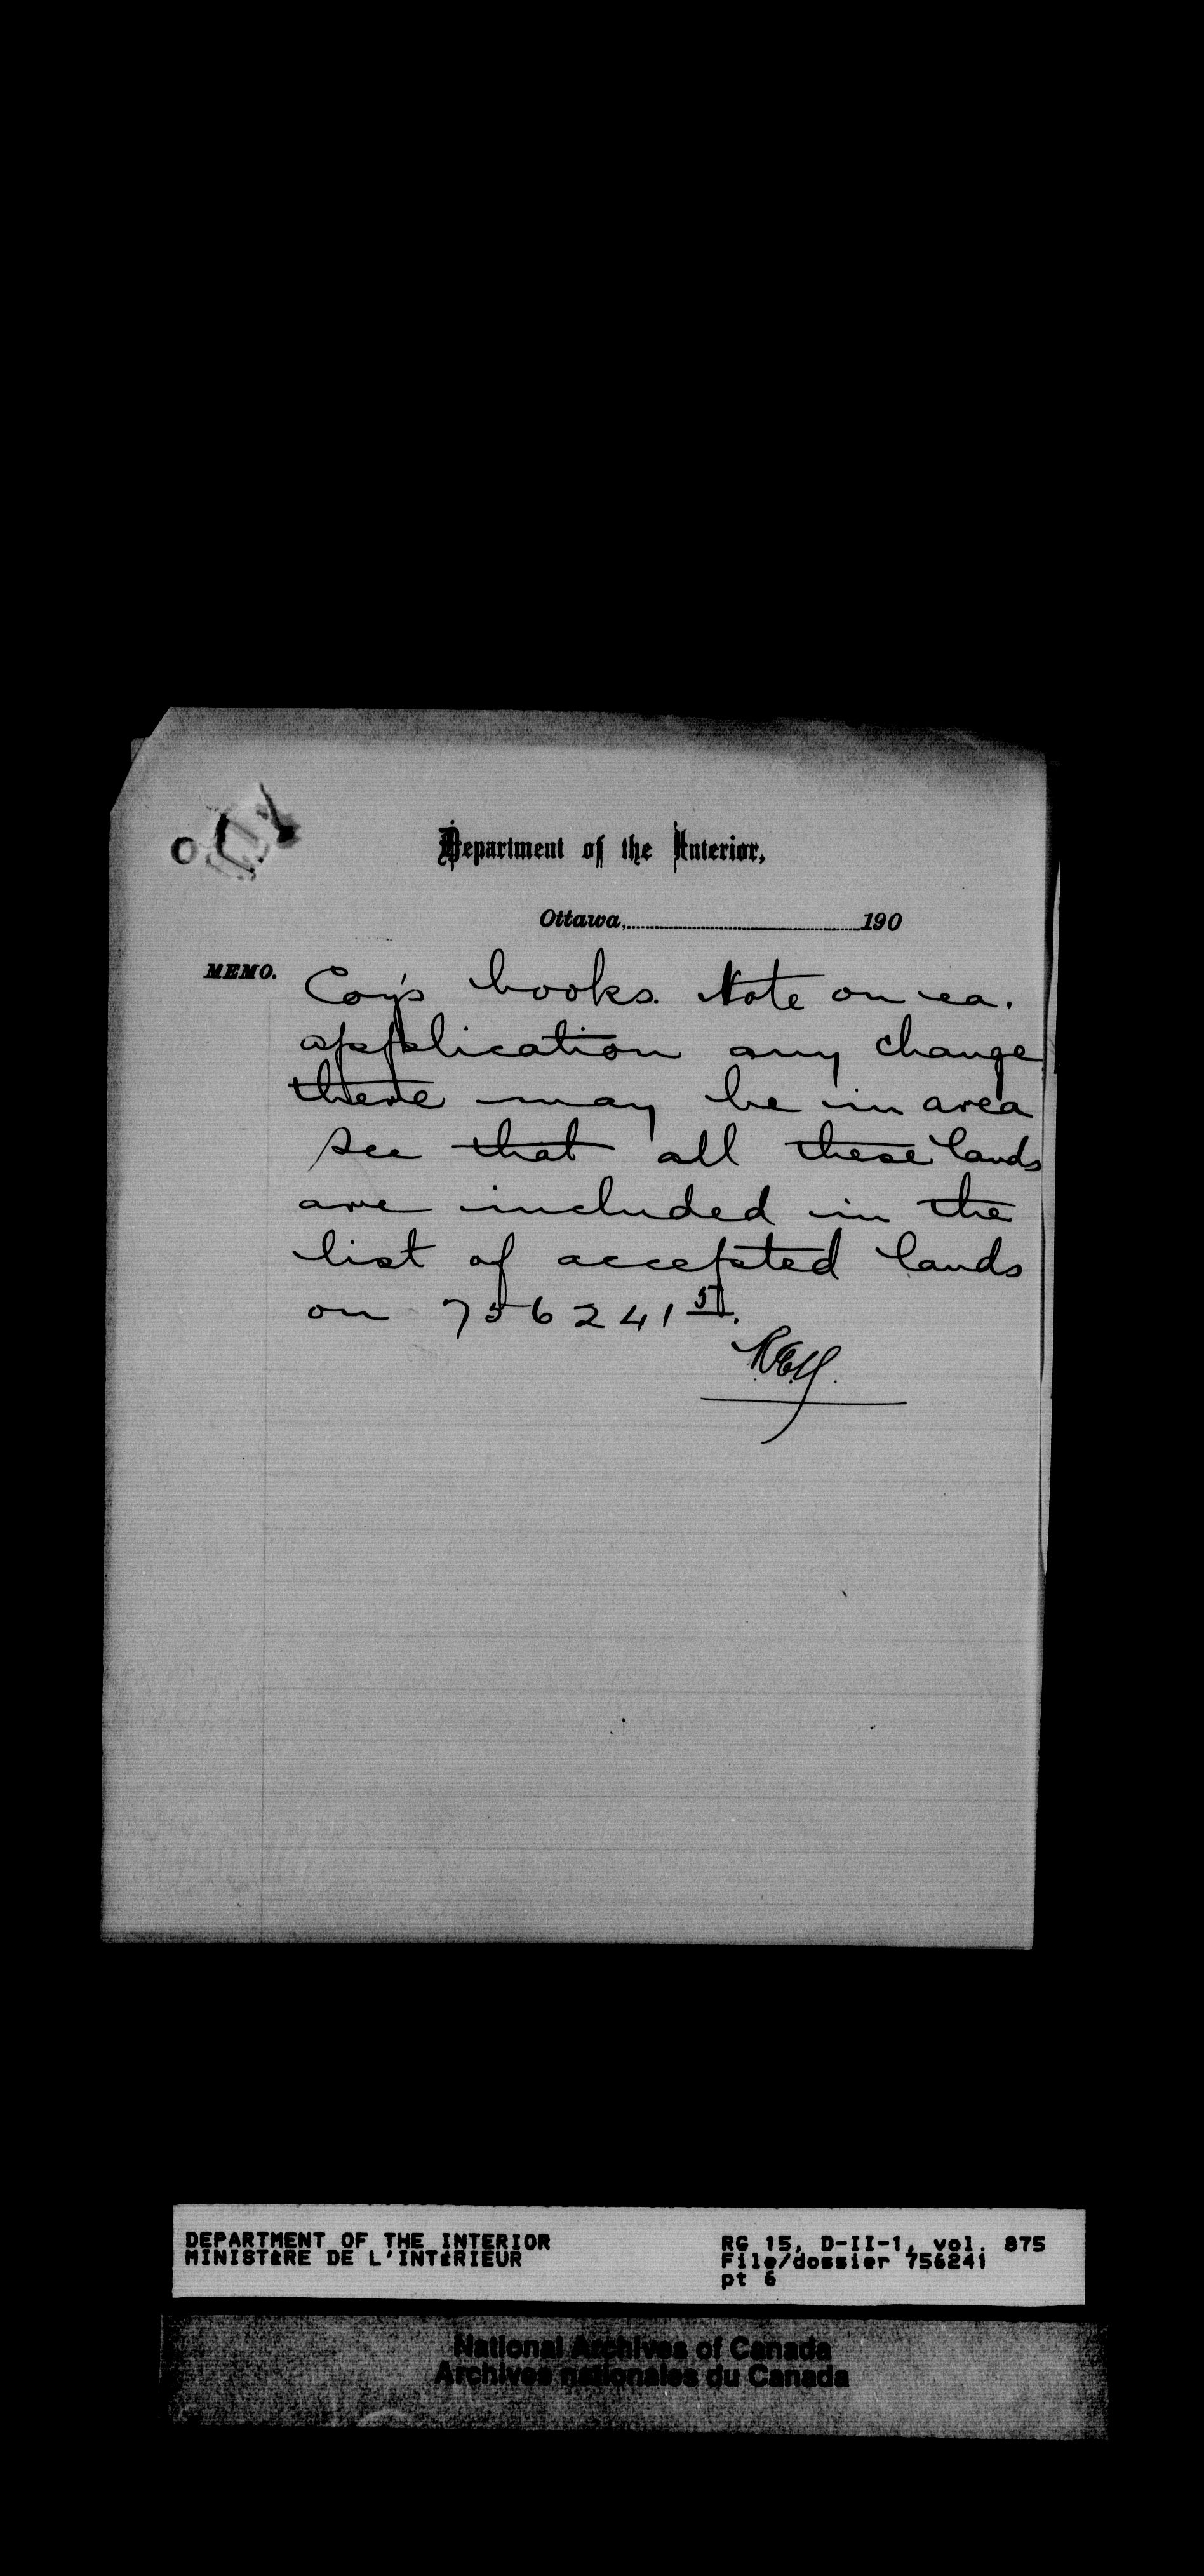 Department of the Interior,
Ottawa,..........190
MEMO.
Coy's books. Note on ea.
application any change
there may be in area
see that all these lands
are included in the
list of accepted lands
on 756241 5.
DEPARTMENT OF THE INTERIOR
MINISTÈRE DE L'INTÉRIEUR
RG 15, D-II-1, vol. 875
File/dossier 756241
pt 6
National Archives of Canada
Archives nationales du Canada